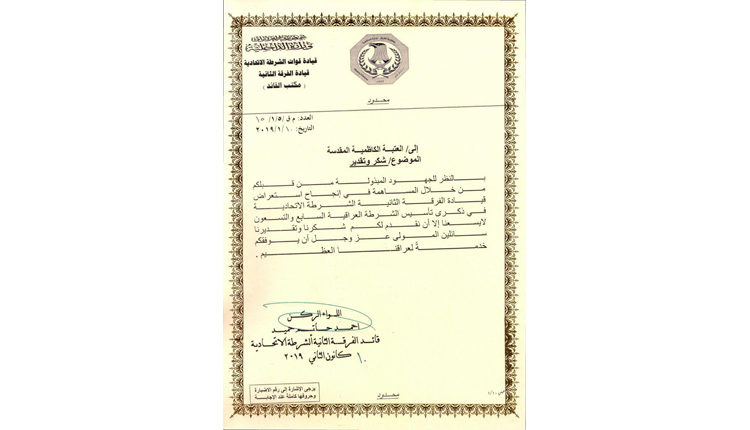 وزارة الداخلية
قيادة قوات الشرطة الاتحادية
قيادة الفرقة الثانية
( مكتب القائد )
محدود
العدد: م ق /١/٥/ ١٥
التاريخ: ٢٠١٩/١/١٠
إلى/ العتبة الكاظمية المقدسة
الموضوع/ شكر وتقدير
بالنظر للجهود المبذولة من قبلكم
من خلال المساهمة في إنجاح استعراض
قيادة الفرقة الثانية الشرطة الاتحادية
في ذكرى تأسيس الشرطة العراقية السابع والتسعون
لايسعنا إلا أن نقدم لكم شكرنا وتقديرنا
سائلين المولى عز وجل أن يوفقكم
خدمةً لعراقنا العظيم .
اللواء الركن
احمد حاتم حميد
قائد الفرقة الثانية الشرطة الاتحادية
١٠ كانون الثاني ٢٠١٩
يرجى الإشارة إلى رقم الاضبارة
وحروفها كاملة عند الاجابة
محدود